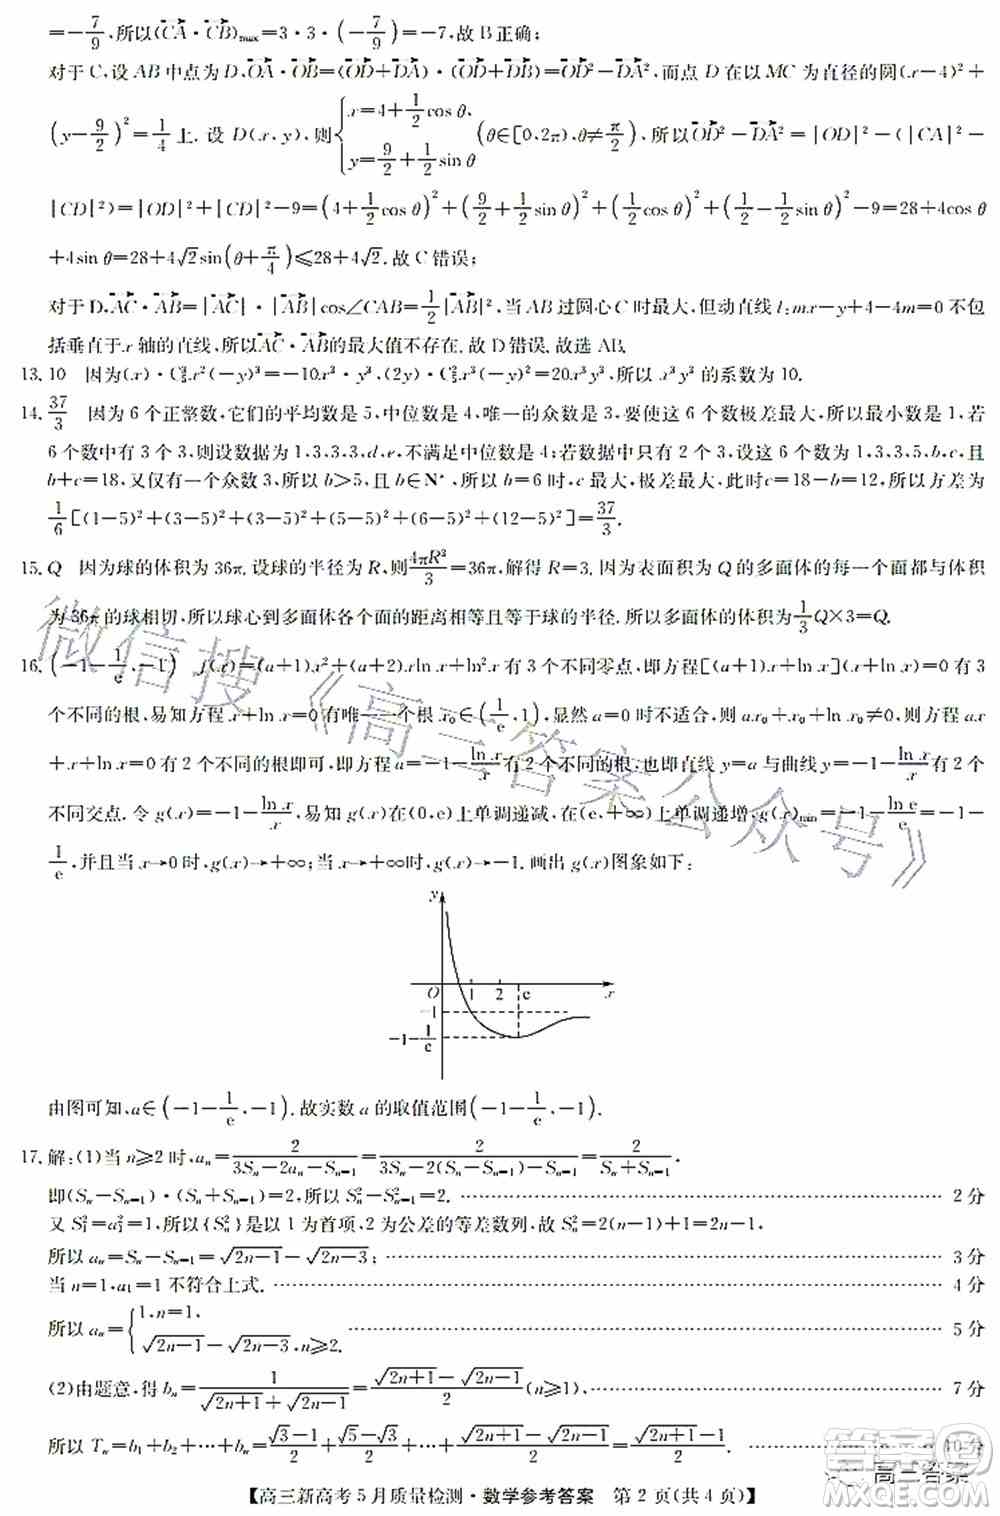 =-7/9,所以(CA·CB)max=3·3·(-7/9)=-7,故B正确;
对于C,设AB中点为D,OA·OB=(OD+DA)·(OD+DB)=OD²-DA²,而点D在以MC为直径的圆(x-4)²+
(y-9/2)²=1/4上.设D(x,y),则{x=4+1/2cosθ, y=9/2+1/2sinθ (θ∈[0,2π),θ≠π/2),所以OD²-DA²=|OD|²-(|CA|²-
|CD|²)=|OD|²+|CD|²-9=(4+1/2cosθ)²+(9/2+1/2sinθ)²+(1/2cosθ)²+(1/2+1/2sinθ)²-9=28+4cosθ
+4sinθ=28+4√2sin(θ+π/4)≤28+4√2.故C错误;
对于D,AC·AB=|AC|·|AB|cos∠CAB=1/2|AB|²,当AB过圆心C时最大,但动直线l:mx-y+4-4m=0不包
括垂直于x轴的直线,所以AC·AB的最大值不存在.故D错误.故选AB.
13.10 因为(x)·C₅³x²(-y)³=-10x³y³,(2y)·C₅²x³(-y)²=20x³y³,所以x³y³的系数为10.
14.37/3 因为6个正整数,它们的平均数是5,中位数是4,唯一的众数是3,要使这6个数极差最大,所以最小数是1,若
6个数中有3个3,则设数据为1,3,3,3,d,e,不满足中位数是4;若数据中有2个3,设这6个数为1,3,3,5,b,c,且
b+c=18,又仅有一个众数3,所以b>5,且b∈N*,所以b=6时,c最大,极差最大.此时c=18-b=12,所以方差为
1/6[(1-5)²+(3-5)²+(3-5)²+(5-5)²+(6-5)²+(12-5)²]=37/3.
15.Q 因为球的体积为36π.设球的半径为R,则4πR³/3=36π,解得R=3.因为表面积为Q的多面体的每一个面都与体积
为36π的球相切,所以球心到多面体各个面的距离相等且等于球的半径.所以多面体的体积为1/3Q×3=Q.
16.(-1-1/e,-1) f(x)=(a+1)x²+(a+2)xlnx+ln²x有3个不同零点,即方程[(a+1)x+lnx](x+lnx)=0有3
个不同的根,易知方程x+lnx=0有唯一一个根x₀∈(1/e,1),显然a=0时不适合,则ax₀+x₀+lnx₀≠0,则方程ax
+x+lnx=0有2个不同的根即可.即方程a=-1-lnx/x有2个不同的根,也即直线y=a与曲线y=-1-lnx/x有2个
不同交点.令g(x)=-1-lnx/x,则g(x)在(0,e)上单调递减,在(e,+∞)上单调递增,g(x)min=-1-lne/e=-1-
1/e,并且当x→0时,g(x)→+∞;当x→+∞时,g(x)→-1.画出g(x)图象如下:
y
O 1 2 e x
-1
-1-1/e
由图可知,a∈(-1-1/e,-1).故实数a的取值范围(-1-1/e,-1).
17.解:(1)当n≥2时,aₙ=2/(3Sₙ-2aₙ-Sₙ₋₁)=2/(3Sₙ-2(Sₙ-Sₙ₋₁)-Sₙ₋₁)=2/(Sₙ+Sₙ₋₁).
即(Sₙ-Sₙ₋₁)·(Sₙ+Sₙ₋₁)=2,所以Sₙ²-Sₙ₋₁²=2. 2分
又S₁²=a₁²=1,所以{Sₙ²}是以1为首项,2为公差的等差数列,故Sₙ²=2(n-1)+1=2n-1,
所以aₙ=Sₙ-Sₙ₋₁=√(2n-1)-√(2n-3); 3分
当n=1,a₁=1不符合上式. 4分
所以aₙ={1,n=1, √(2n-1)-√(2n-3),n≥2. 5分
(2)由题意,得bₙ=1/(√(2n+1)+√(2n-1))=(√(2n+1)-√(2n-1))/2(n≥1), 7分
所以Tₙ=b₁+b₂+…+bₙ=(√3-1)/2+(√5-√3)/2+…+(√(2n+1)-√(2n-1))/2=(√(2n+1)-1)/2. 10分
【高三新高考5月质量检测·数学参考答案 第2页(共4页)】
微信搜《高三答案公众号》
高三答案